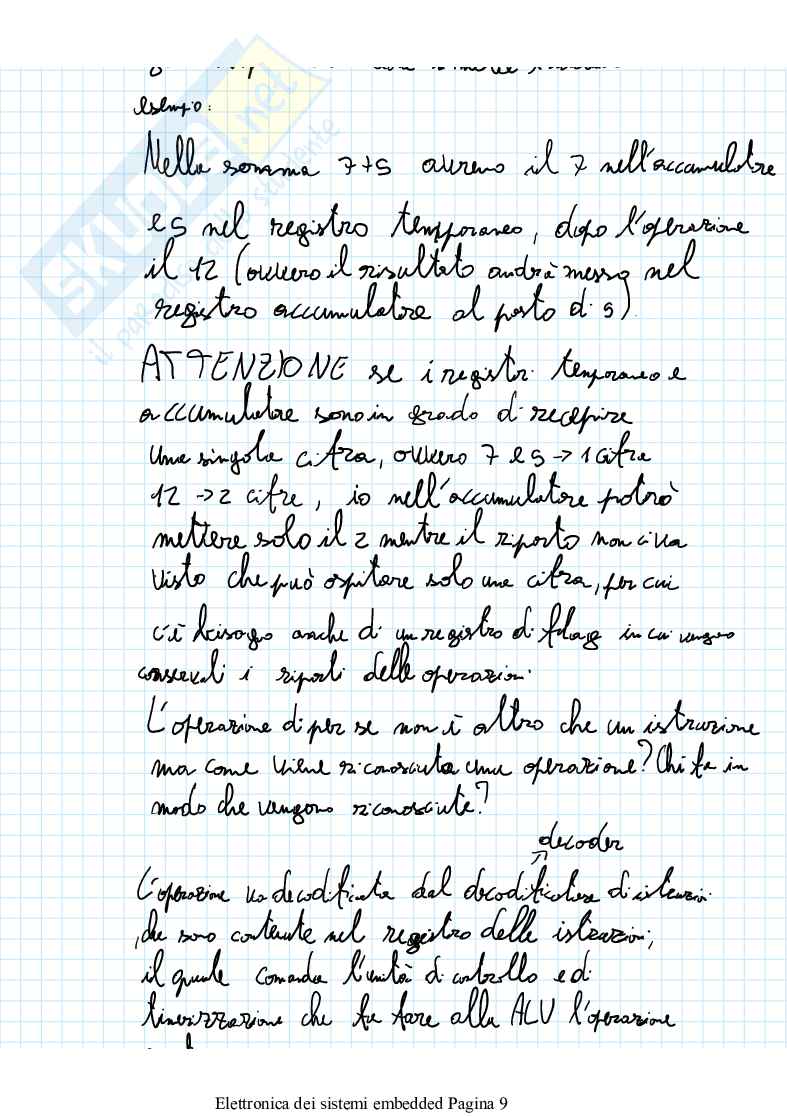 esempio:
Nella somma 7+5 avremo il 7 nell'accumulatore
e 5 nel registro temporaneo, dopo l'operazione
il 12 (ovvero il risultato andrà messo nel
registro accumulatore al posto di 5).
ATTENZIONE se i registri temporaneo e
accumulatore sono in grado di recepire
una singola cifra, ovvero 7 e 5 -> 1 cifra
12 -> 2 cifre, io nell'accumulatore potrò
mettere solo il 2 mentre il riporto non ci va
visto che può ospitare solo una cifra, per cui
c'è bisogno anche di un registro di flag in cui vengono
conservati i riporti delle operazioni.
L'operazione di per se non è altro che un istruzione
ma come viene riconosciuta una operazione? Chi fa in
modo che vengono riconosciute?
decoder
L'operazione va decodificata dal decodificatore di istruzioni
, che sono contenute nel registro delle istruzioni,
il quale comanda l'unità di controllo e di
timerizzazione che fa fare alla ALU l'operazione
SKUOLA.net
il paradiso dello studente
Elettronica dei sistemi embedded Pagina 9